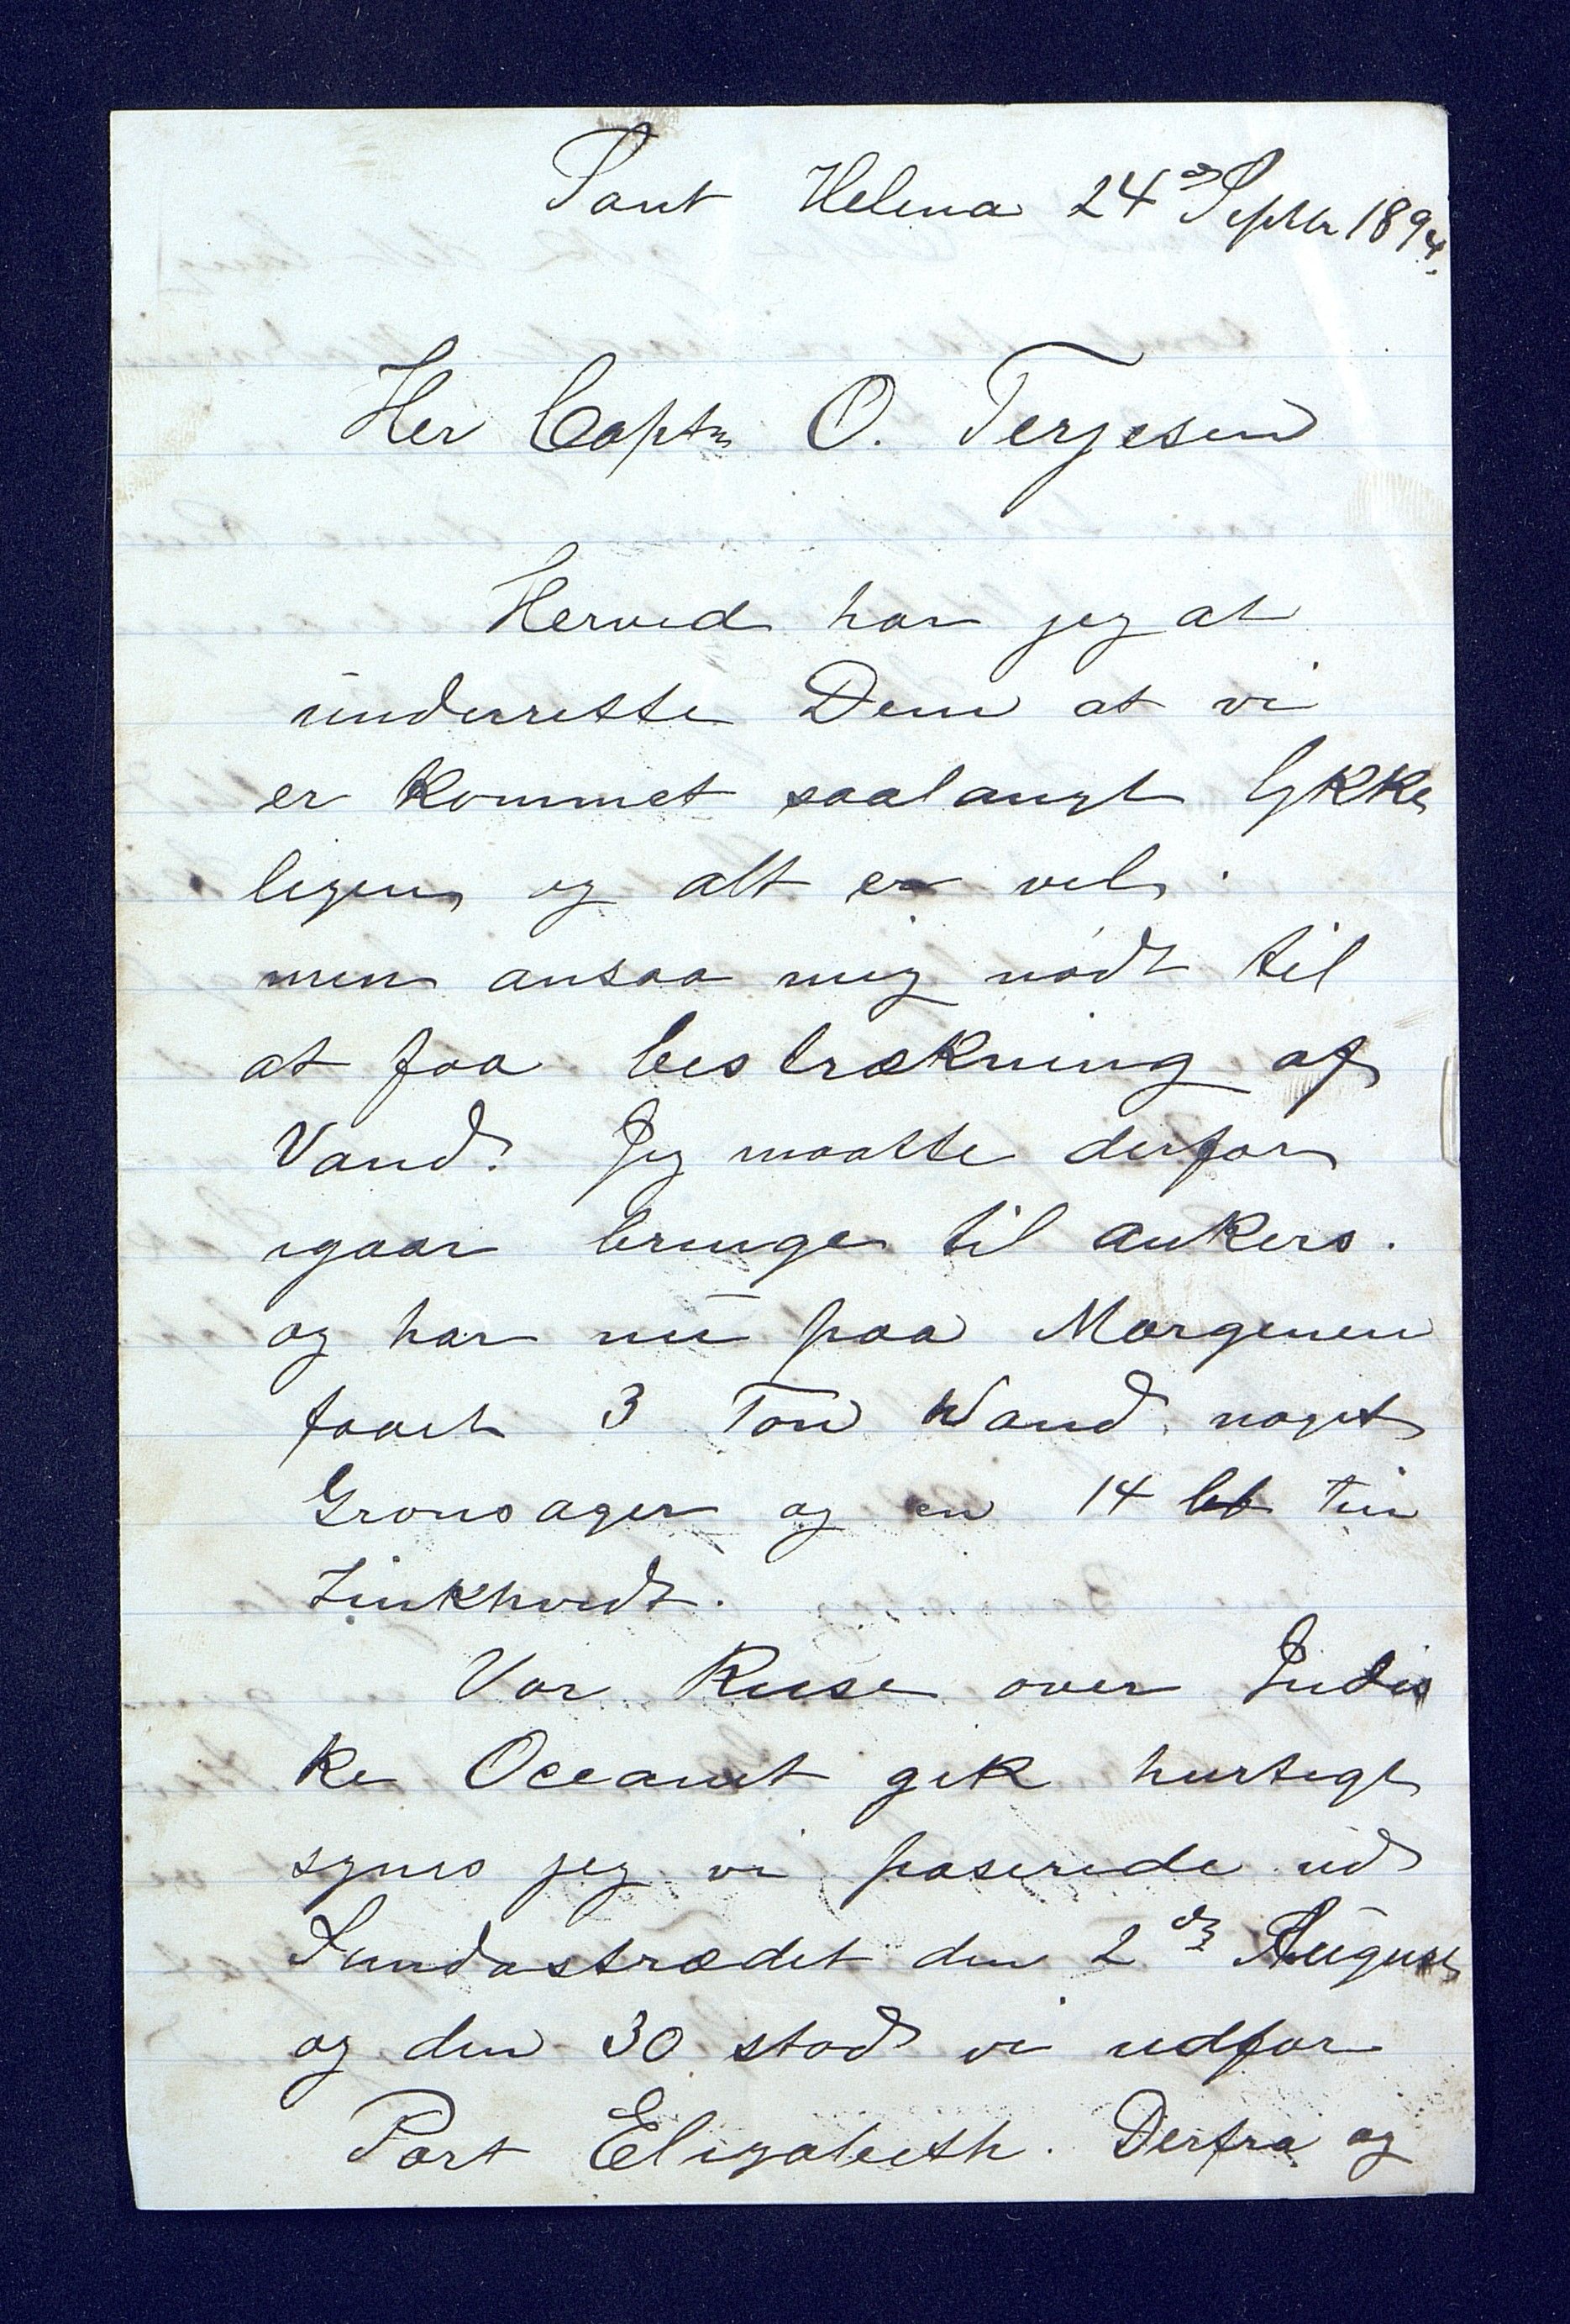 Sant Helena 24de Septbr 1894.
Her Captn O. Terjesen
Herved har jeg at
underrette Dem at vi
er kommet saalangt lykke
ligen og alt er vel.
men ansaa mig nódt til
at faa bestrækning af
Vand. Jeg maatte derfor
igaar bringe til ankers.
og har nu paa Morgenen
faaet 3 Ton Vand. noget
Gronsager og en 14 lb Tin
Zinkhvidt.
Vor Reise over Indis
ke Oceanet gik hurtigt
synes jeg vi paserede ud
Sundastrædet den 2de August
og den 30 stod vi udfor
Port Elizabeth. Derfra og